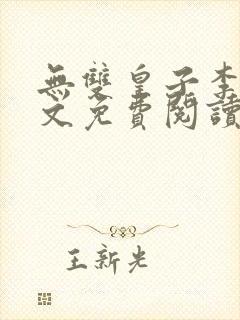 無雙皇子李
文免費閱讀
王新光